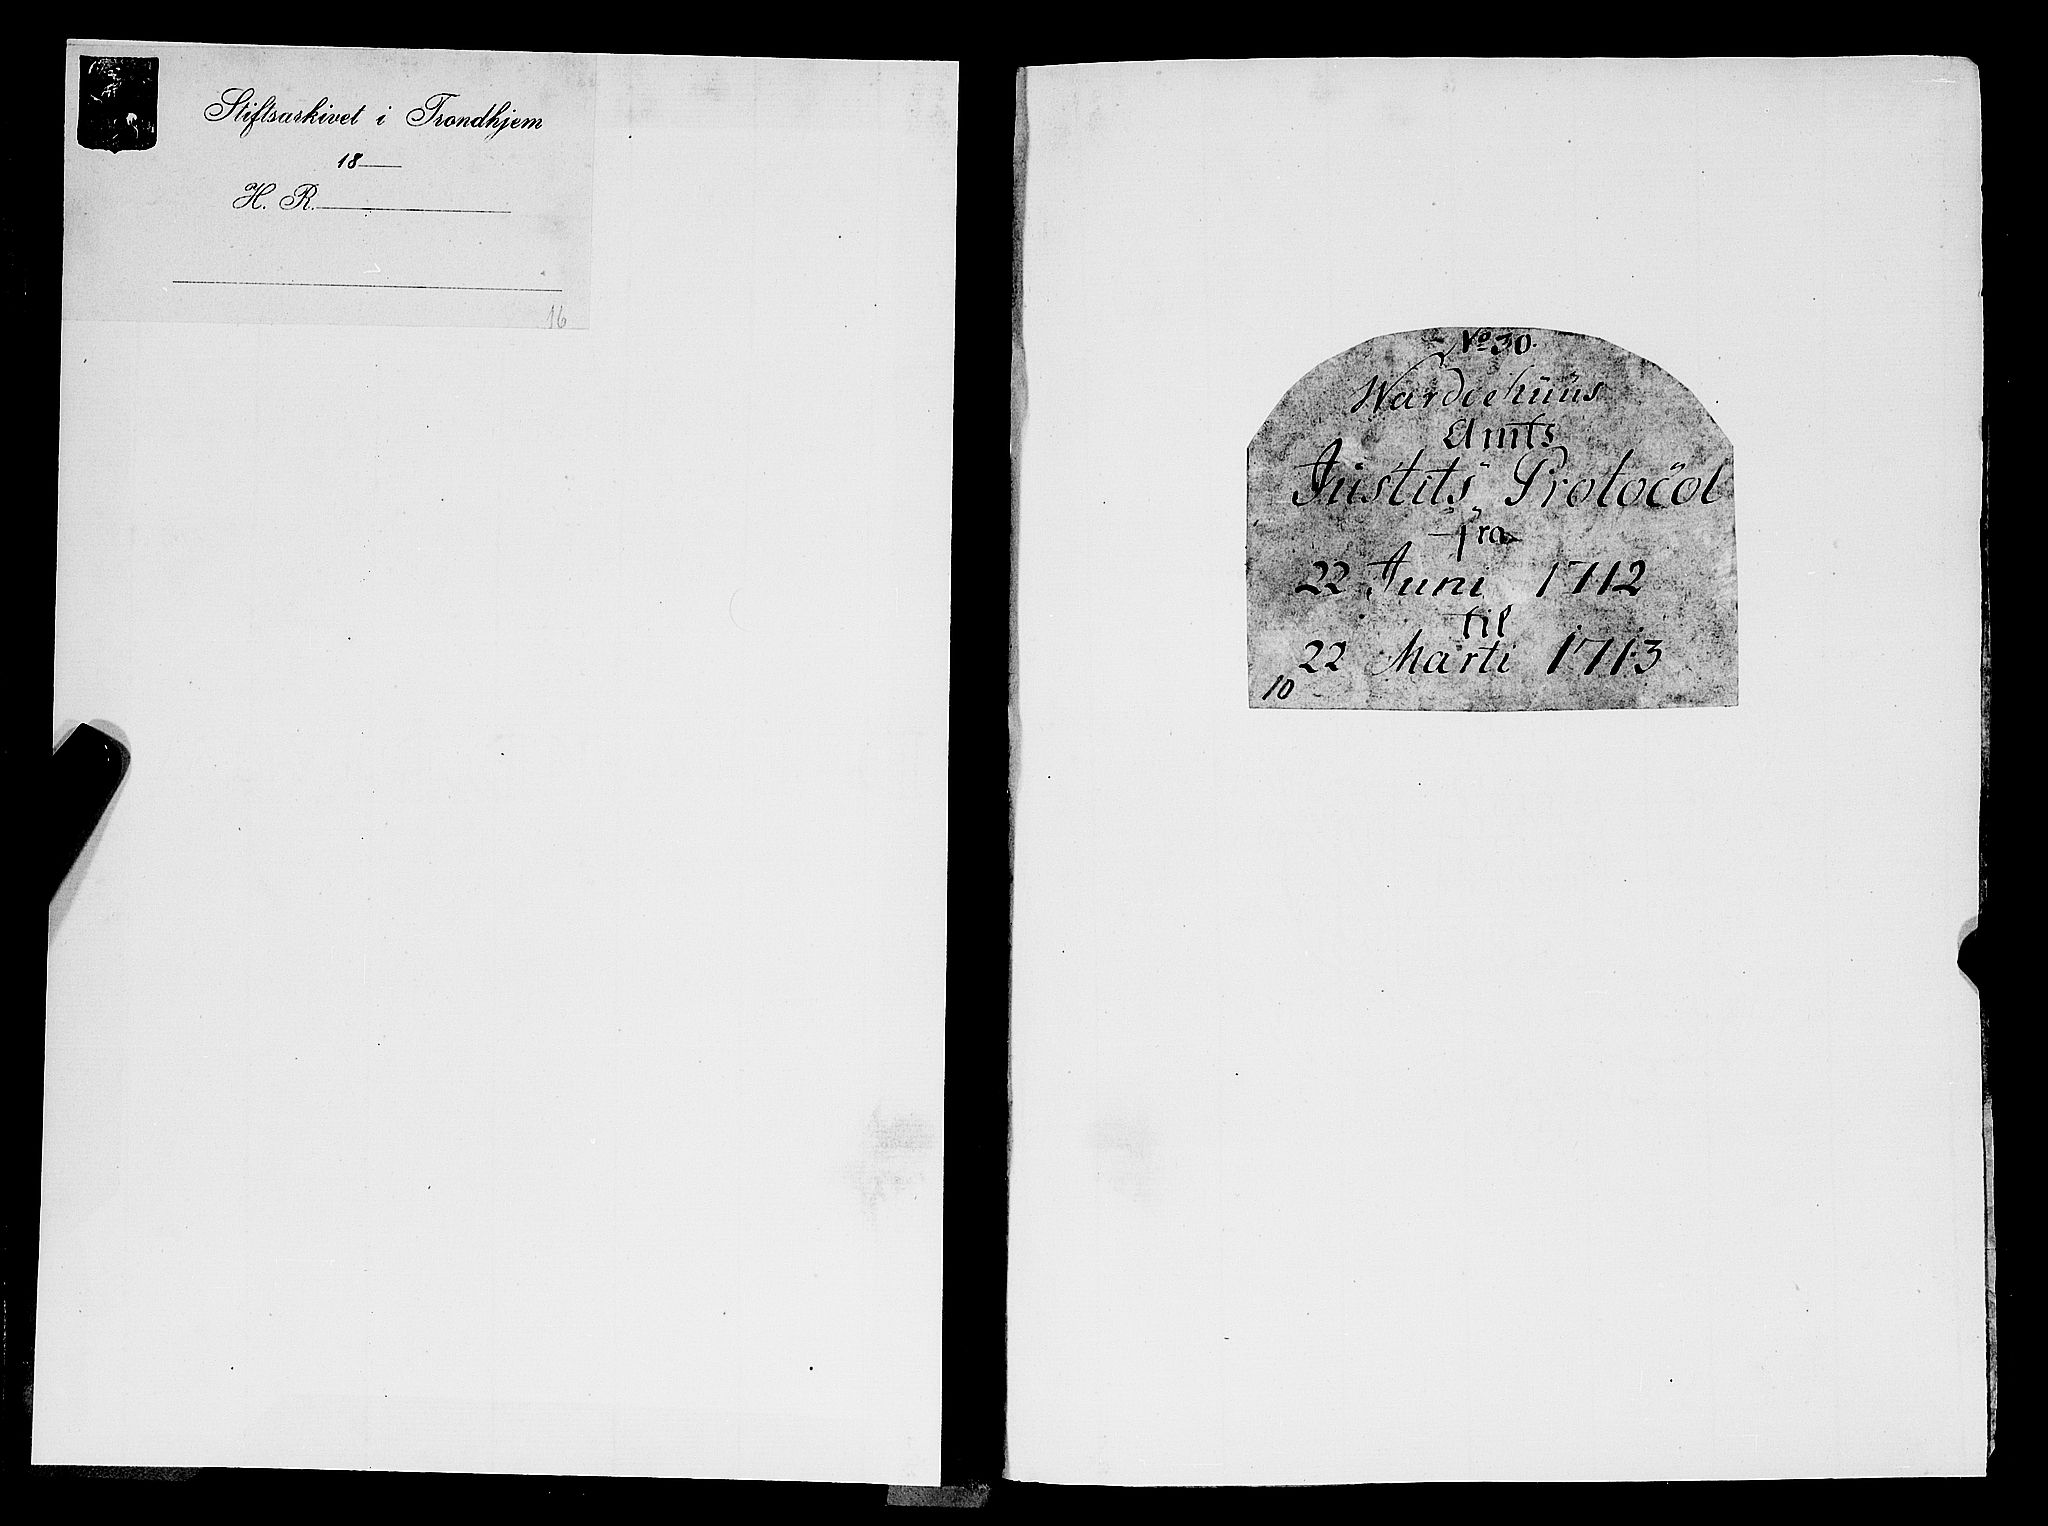 Stiftsarkivet i Trondhjem
18
H. R.
16
No 30.
Wardøehuus
Amts
Justits Protocol
fra
22 Juni 1712
til
22 Marti 1713
10